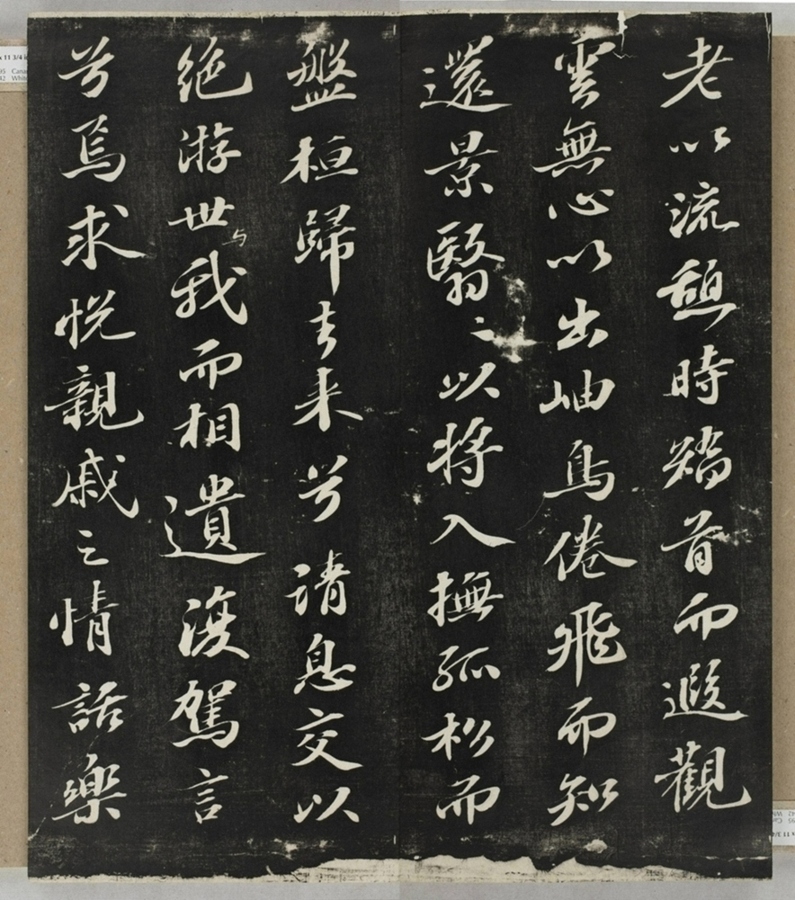 老以流憩時矯首而遐觀
雲無心以出岫鳥倦飛而知
還景翳〻以將入撫孤松而
盤桓歸去来兮請息交以
絶游世与我而相遺復駕言
兮焉求悦親戚之情話樂